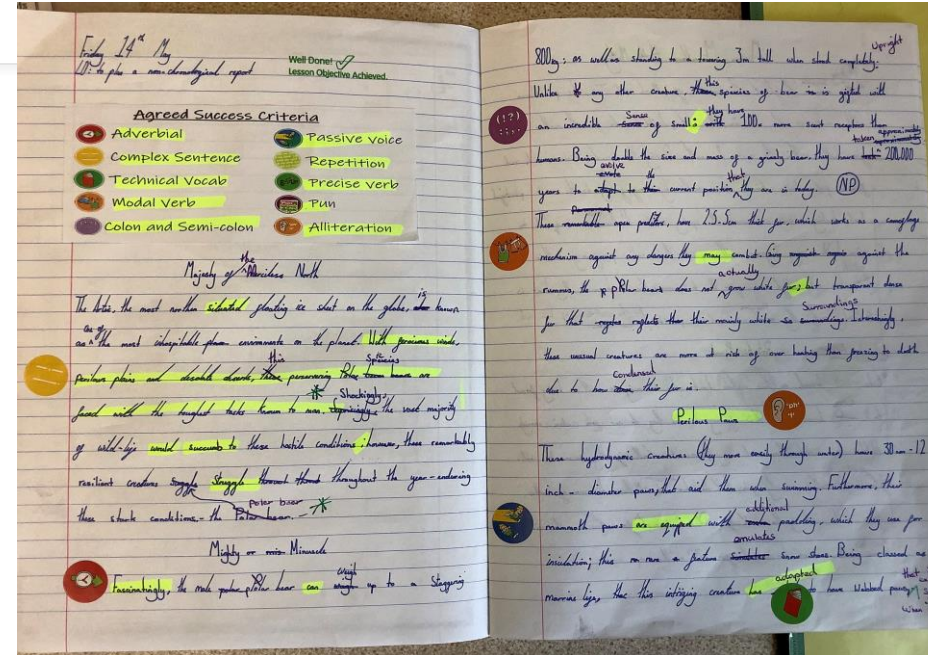 Friday 14th May
LO: to plan a non-chronological report
Well Done!
Lesson Objective Achieved.
Agreed Success Criteria
Adverbial
Complex Sentence
Technical Vocab
Modal Verb
Colon and Semi-colon
Passive voice
Repetition
Precise verb
Pun
Alliteration
Majesty of the Merciless North
The Artic, the most northen situated floating ice sheet on the globe, is known
as one of the most inhospitable environments on the planet. With ferocious winds,
perilous plains and desolate deserts, this persevering Species are
faced with the toughest tasks known to man. Shockingly, the vast majority
of wild-life would succumb to these hostile conditions; however, these remarkably
resilient creatures Struggle throughout the year - enduring
these stark conditions - the Polar bear.
Mighty or Minuscule
Fascinatingly, the male polar bear can weigh up to a Staggering
800kg: as well as standing to a towering 3m tall when stood completely upright
Unlike any other creature, this spicies of bear is gifted with
an incredible Sense of smell; they have 100x more scent receptors than
humans. Being double the size and mass of a grizzly bear, they have taken approximatly 200,000
years to evolve to the current position that they are in today. (NP)
These apex preditors, have 2.5-5cm thick fur, which works as a camoflage
mechanism against any dangers they may combat. Going again against the
rumours, the polar bear does not actually grow white fur; but transparent dense
fur that reflects their mainly white Surroundings. Interestingly,
these unusual creatures are more at risk of over heating than freezing to death
due to how Condensed their fur is.
Perilous Paws
These hydrodynamic creatures (they move easily through water) have 30cm - 12
inch - diameter paws, that aid them when swimming. Furthermore, their
mammoth paws are equiped with additional padding, which they use for
insulation; this feature emulates snow shoes. Being classed as
marine life, this intriging creature has adapted to have Webbed paws, that
when